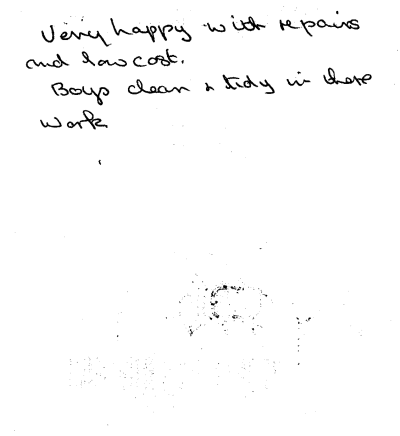 Very happy with repairs
and low cost.
Boys clean & tidy in there
work